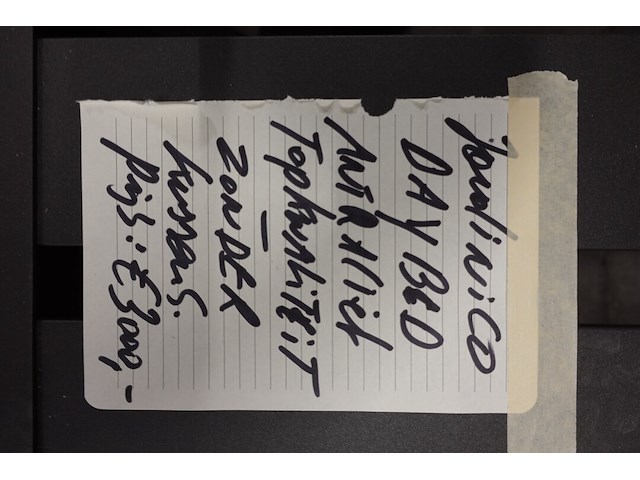 JardiniCO
DAYBED
ANTRACiEt
TopKwaliTEiT
–
ZONDER
kussens.
Prijs: € 3000,-